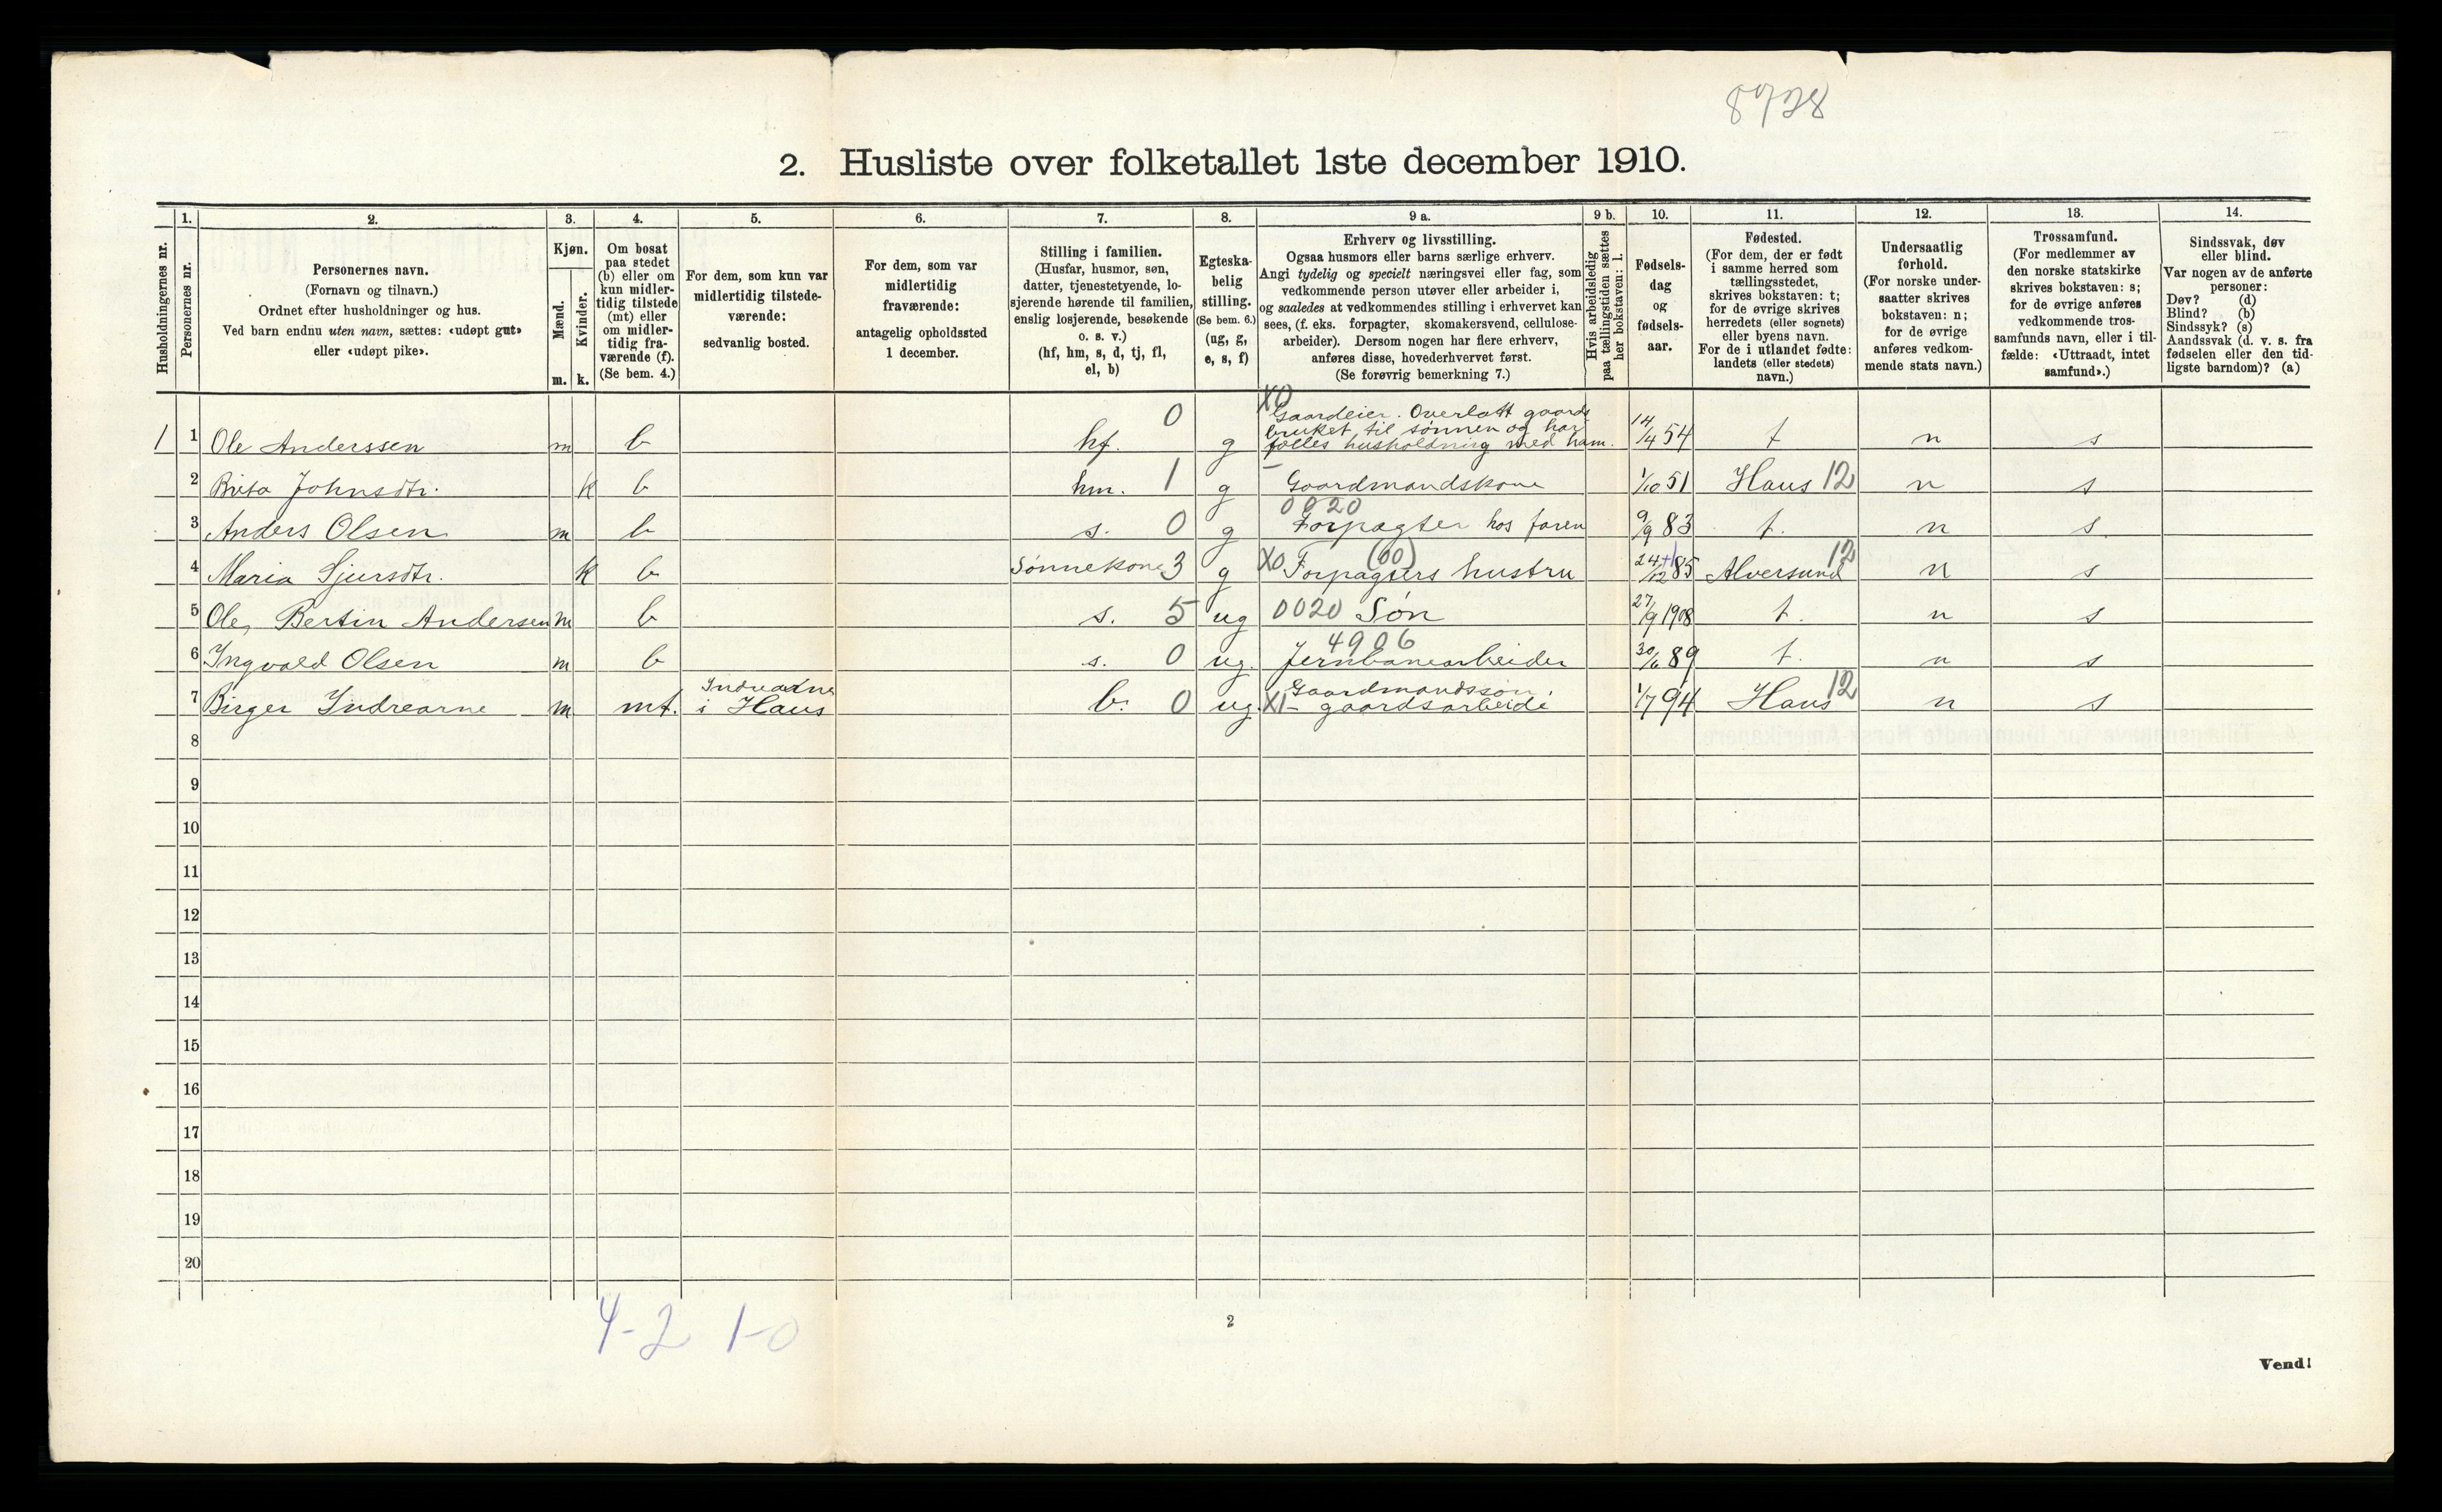 8728
2. Husliste over folketallet 1ste december 1910.
Husholdningernes nr.
1.
Personernes nr.
2.
Personernes navn.
(Fornavn og tilnavn.)
Ordnet efter husholdninger og hus.
Ved barn endnu uten navn, sættes: «udøpt gut»
eller «udøpt pike».
3.
Kjøn.
Mænd.
Kvinder.
m. k.
4.
Om bosat
paa stedet
(b) eller om
kun midler-
tidig tilstede
(mt) eller
om midler-
tidig fra-
værende (f).
(Se bem. 4.)
5.
For dem, som kun var
midlertidig tilstede-
værende:
sedvanlig bosted.
6.
For dem, som var
midlertidig
fraværende:
antagelig opholdssted
1 december.
7.
Stilling i familien.
(Husfar, husmor, søn,
datter, tjenestetyende, lo-
sjerende hørende til familien,
enslig losjerende, besøkende
o. s. v.)
(hf, hm, s, d, tj, fl,
el, b)
8.
Egteska-
belig
stilling.
(Se bem. 6.)
(ug, g,
e, s, f)
9 a.
Erhverv og livsstilling.
Ogsaa husmors eller barns særlige erhverv.
Angi tydelig og specielt næringsvei eller fag, som
vedkommende person utøver eller arbeider i,
og saaledes at vedkommendes stilling i erhvervet kan
sees, (f. eks. forpagter, skomakersvend, cellulose-
arbeider). Dersom nogen har flere erhverv,
anføres disse, hovederhvervet først.
(Se forøvrig bemerkning 7.)
9 b.
Hvis arbeidsledig
paa tællingstiden sættes
her bokstaven: l.
10.
Fødsels-
dag
og
fødsels-
aar.
11.
Fødested.
(For dem, der er født
i samme herred som
tællingsstedet,
skrives bokstaven: t;
for de øvrige skrives
herredets (eller sognets)
eller byens navn.
For de i utlandet fødte:
landets (eller stedets)
navn.)
12.
Undersaatlig
forhold.
(For norske under-
saatter skrives
bokstaven: n;
for de øvrige
anføres vedkom-
mende stats navn.)
13.
Trossamfund.
(For medlemmer av
den norske statskirke
skrives bokstaven: s;
for de øvrige anføres
vedkommende tros-
samfunds navn, eller i til-
fælde: «Uttraadt, intet
samfund».)
14.
Sindssvak, døv
eller blind.
Var nogen av de anførte
personer:
Døv? (d)
Blind? (b)
Sindssyk? (s)
Aandssvak (d. v. s. fra
fødselen eller den tid-
ligste barndom)? (a)
1 1 Ole Anderssen m b hf. 0 g X0 Gaardeier. Overlatt gaards
bruket til sønnen og har
fælles husholdning med ham. 14/4 54 t n s
2 Brita Johnsdtr. k b hm. 1 g – Gaardmandskone 1/10 51 Haus 12 n s
3 Anders Olsen m b s. 0 g 0020 Forpagter hos faren 9/9 83 t. n s
4 Maria Sjursdtr. k b Sønnekone 3 g X0 (00) Forpagters hustru 24/12 85 Alversund 12 n s
5 Ole Bertin Andersen m b s. 5 ug 0020 Søn 27/9 1908 t. n s
6 Ingvald Olsen m b s. 0 ug. 4906 Jernbanearbeider 30/6 89 t. n s
7 Birger Indrearne m mt. Indrearne
i Haus b. 0 ug. X1 Gaardmandssøn,
gaardsarbeide 1/7 94 Haus 12 n s
8
9
10
11
12
13
14
15
16
17
18
19
20
4-2 1-0
2
Vend!